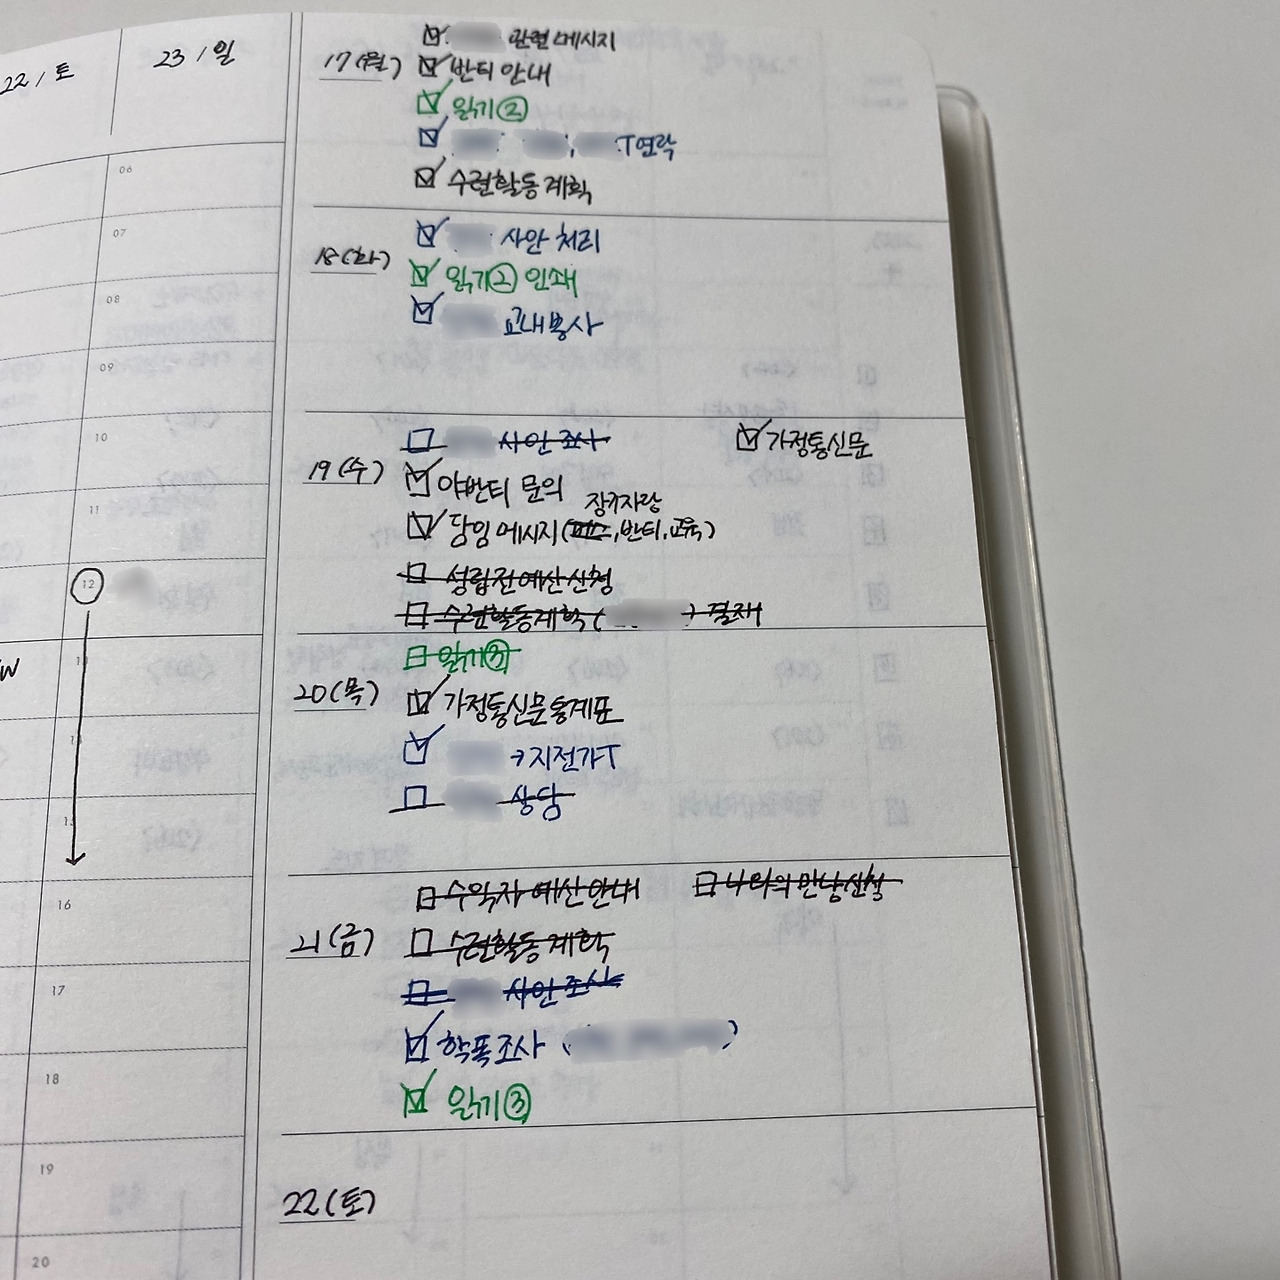 22 / 토
23 / 일
06
07
08
09
10
11
12
16
17
18
19
20
17(월)
관련 메시지
반티 안내
읽기②
T연락
수련활동 계획
18(화)
사안 처리
읽기② 인쇄
교내봉사
19(수)
사안 조사
가정통신문
야반티 문의
장기자랑
담임 메시지( , 반티, 교육)
성립전 예산 신청
수련활동계획( ) 결재
20(목)
읽기③
가정통신문 통계표
상담
21(금)
수익자 예산 안내
나라의 만남 신청
수련활동 계획
사안 조사
학폭조사 ( )
읽기③
22(토)